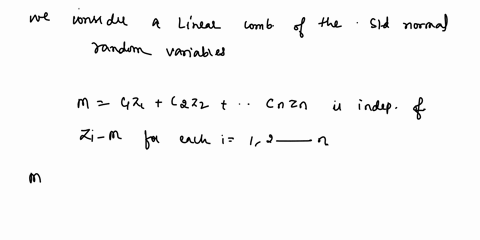 we consider a linear comb of the std normal
random variables
M = C1Z1 + C2Z2 + .. CnZn is indep. of
Zi - M for each i = 1, 2 —— n
M